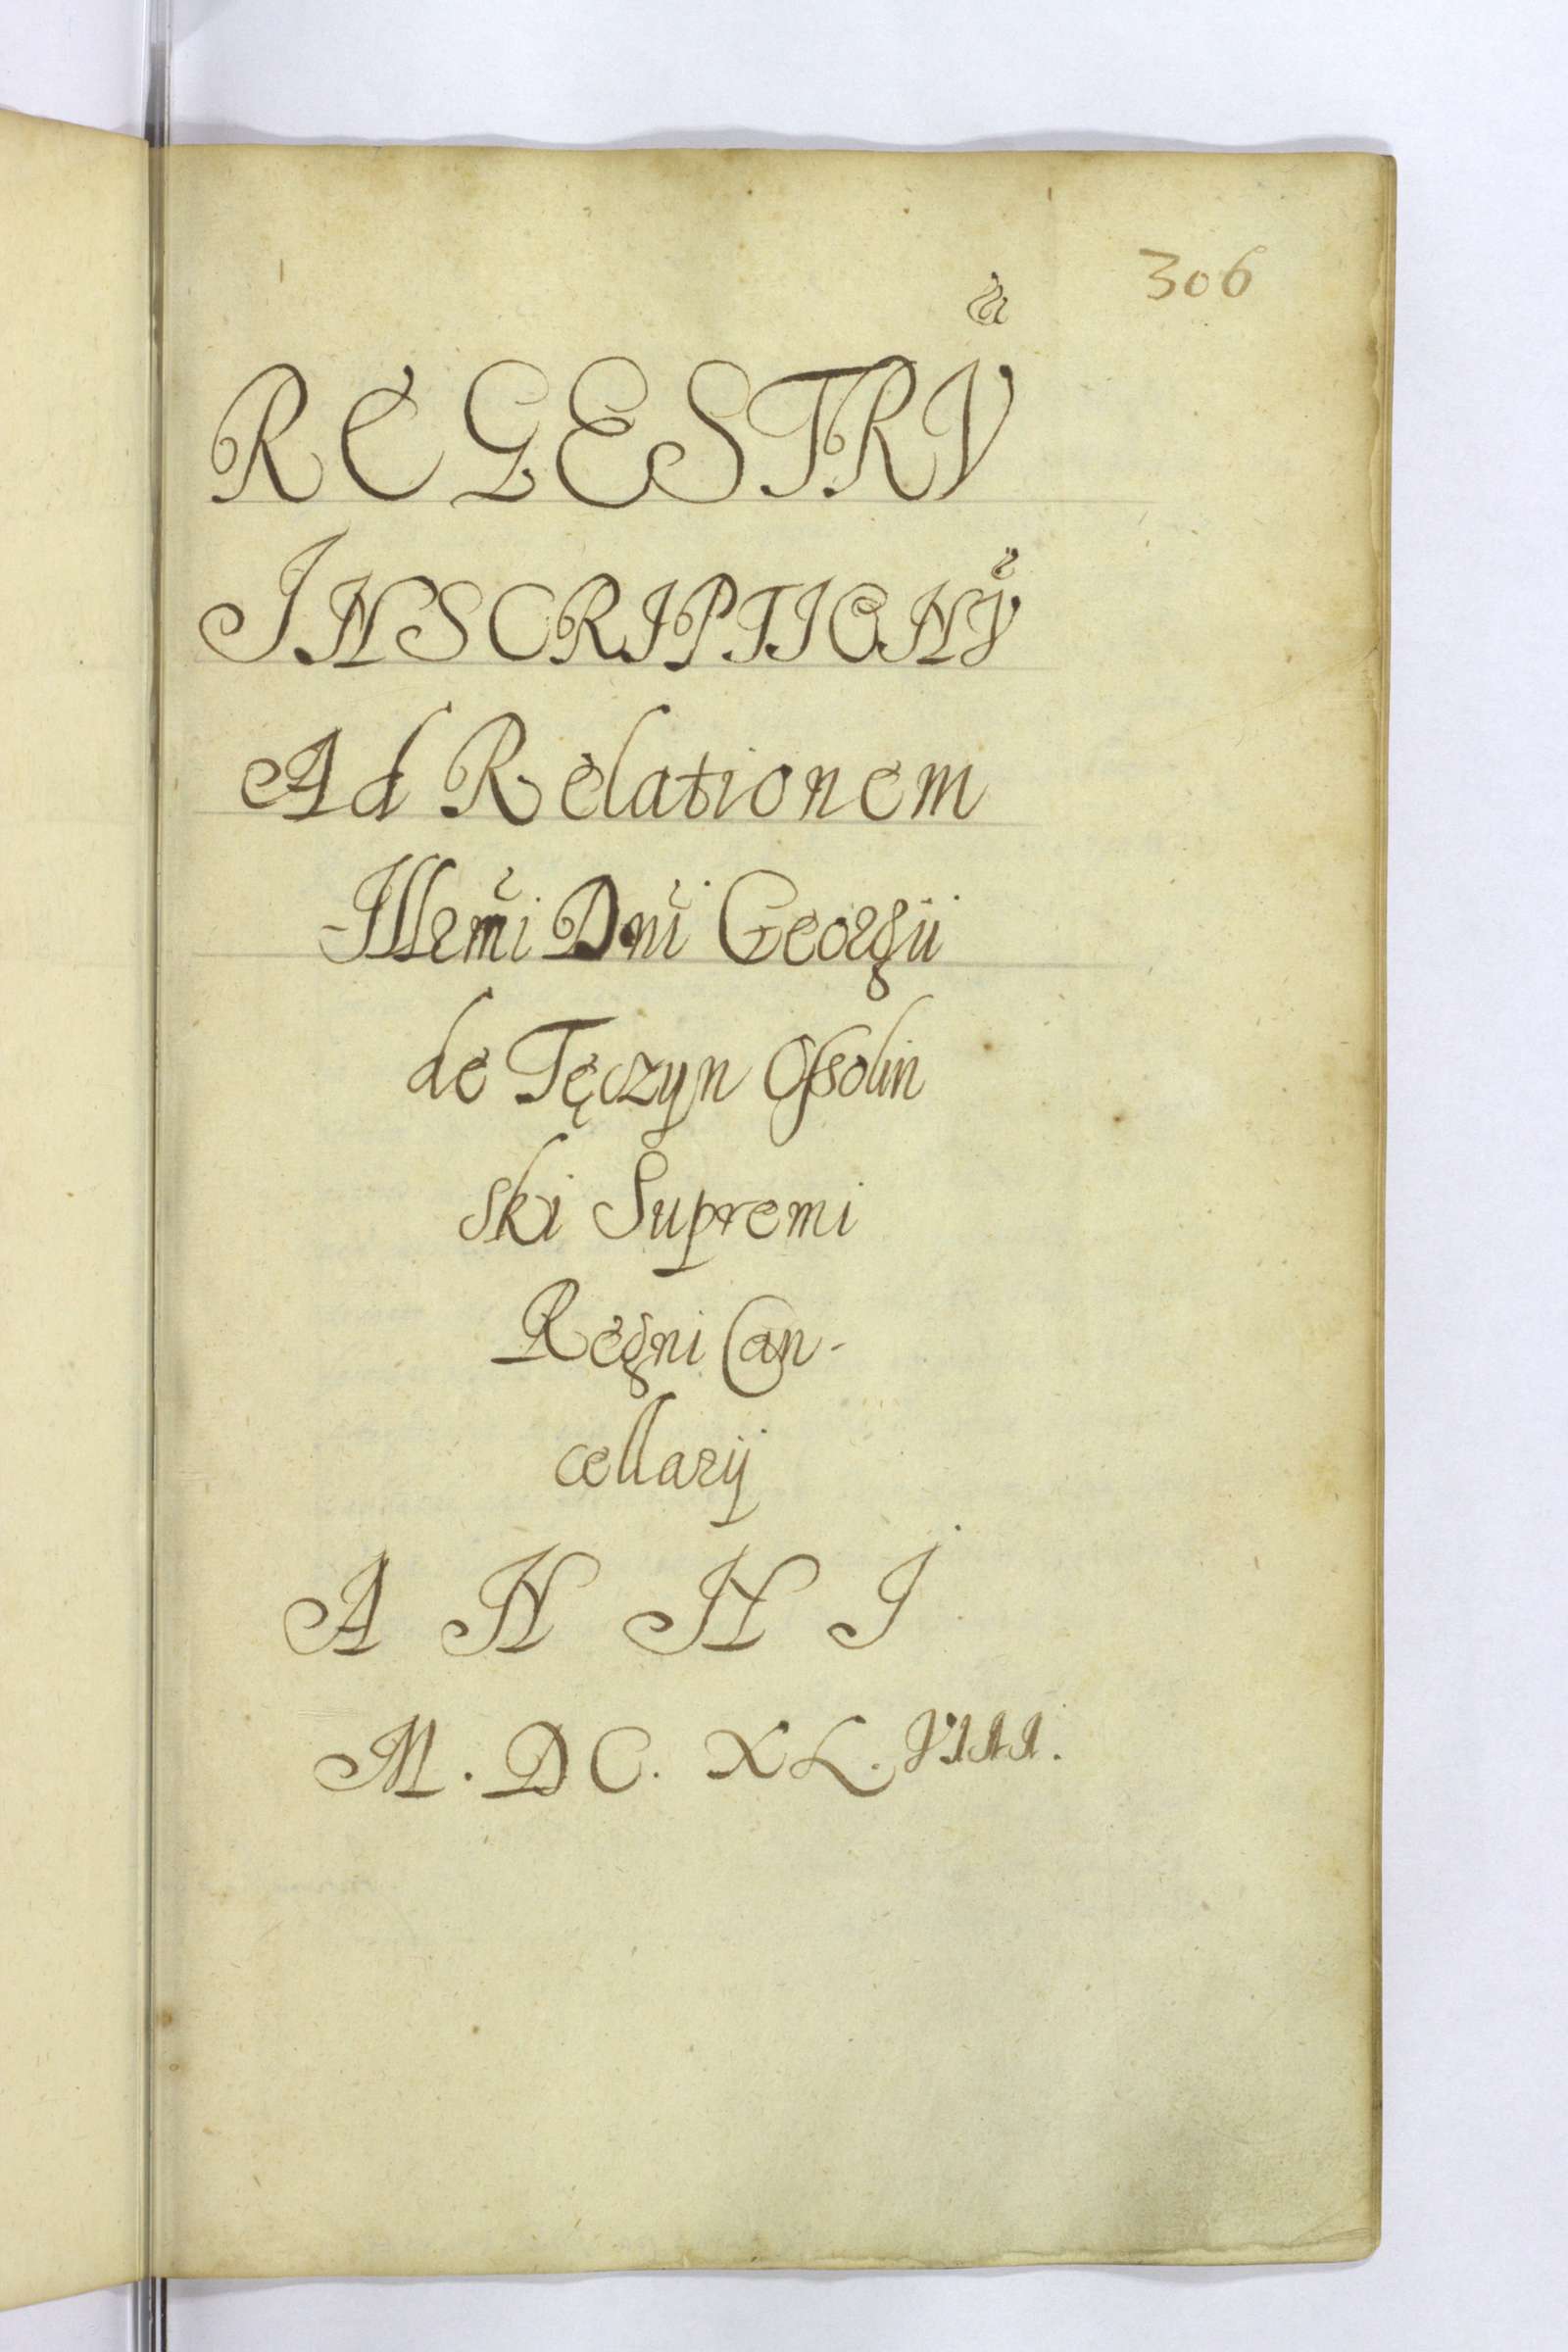 306
REGESTRṼ
INSCRIPTIONṼ
Ad Relationem
Illrm̃i Dnĩ Georgii
de Tęczyn Ossolin
ski Supremi
Regni Can-
cellarij
ANNI
M. DC. XL. VIII.